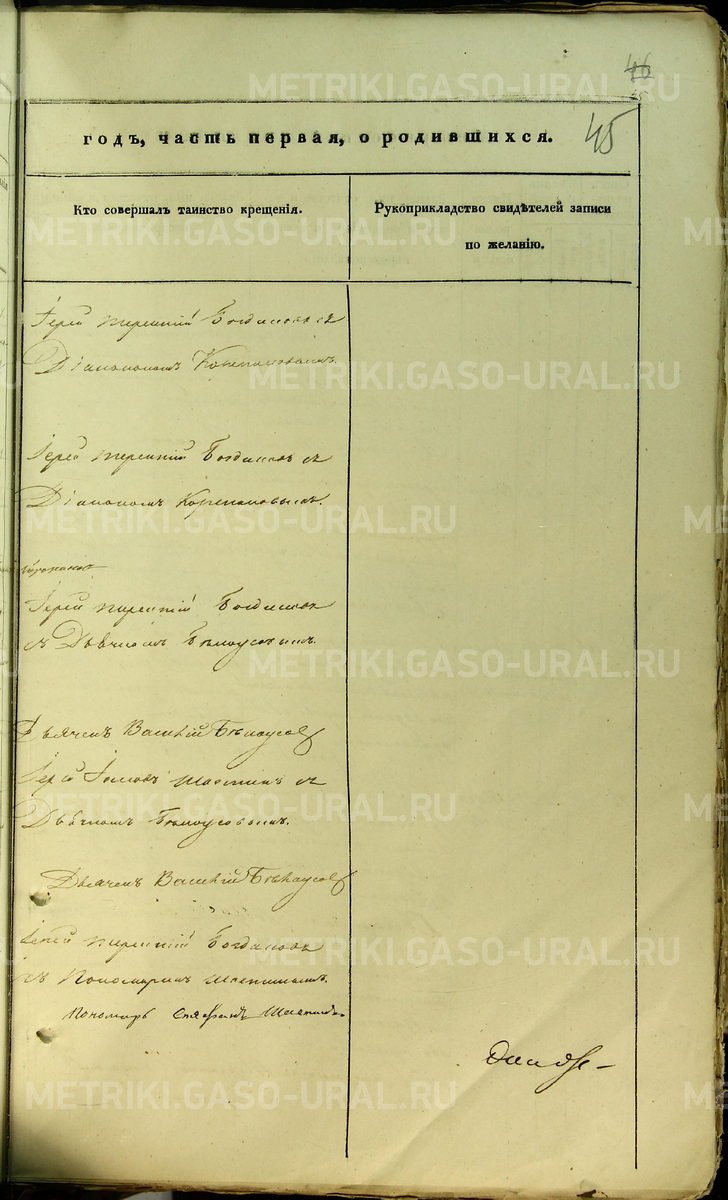 46
45
45
годъ, часть первая, о родившихся.
Кто совершалъ таинство крещенія.
Рукоприкладство свидѣтелей записи
по желанію.
Іерей Терентій Богдановъ съ
Діакономъ Корепановымъ.
Іерей Терентій Богдановъ съ
Діакономъ Корепановымъ.
Іерей Терентій Богдановъ
съ Дьячкомъ Бѣлоусовымъ.
Дьячекъ Василій Бѣлоусовъ
Іерей Іаковъ съ
Дьячкомъ Бѣлоусовымъ.
Дьячекъ Василій Бѣлоусовъ
Іерей Терентій Богдановъ
съ Пономаремъ
Пономарь Стефанъ
METRIKI.GASO-URAL.RU